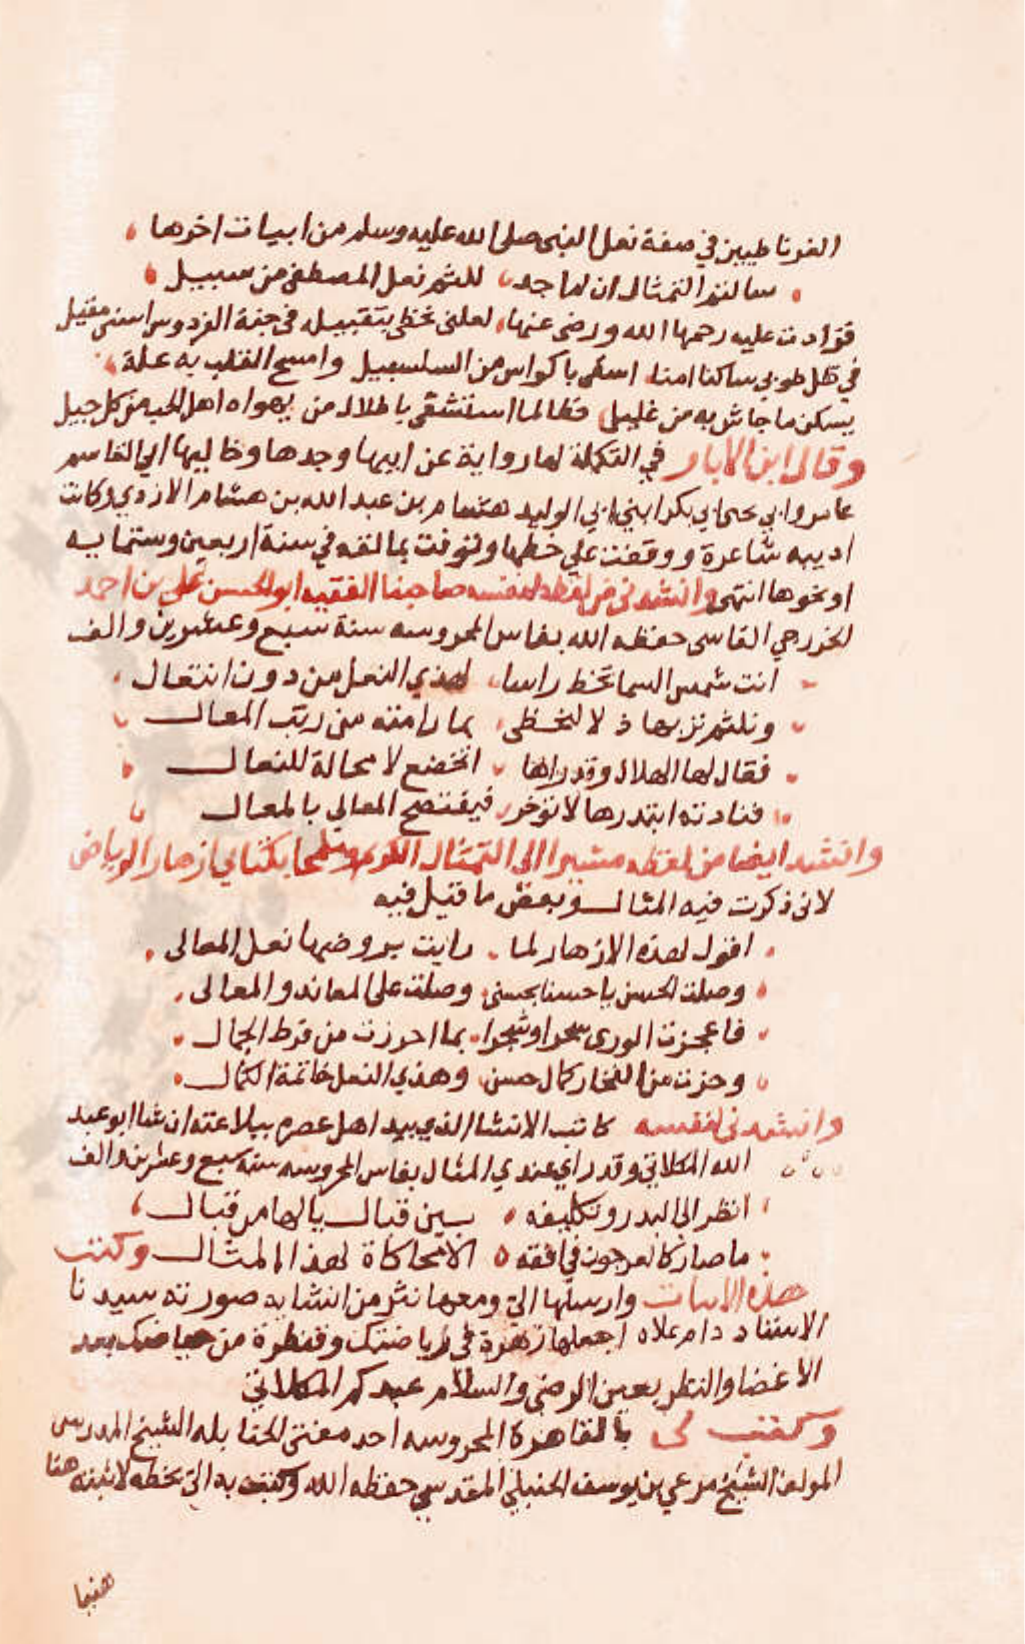 الغرناطيين في صفة نعل النبي صلى الله عليه وسلم من ابيات اخرها
سالثم التمثال ان لم اجد للثم نعل المصطفى من سبيل
فزادت عليه رحمها الله ورضي عنها لعلني نحظى بتقبيله في جنة الفردوس اسنى مقيل
في ظل طوبى ساكنا امنا اسقى باكواس من السلسبيل وامسح القلب به علة
يسكن ما جاش به من غليل فطالما استشفى باطلال من يهواه اهل الحب من كل جيل
وقال ابن الابار في التكملة لها رواية عن ابيها وجدها وخاليها ابي القاسم
عامر وابي يحيى ابي بكر ابني ابي الوليد هشام بن عبد الله بن هشام الازدي وكانت
اديبه شاعرة ووقفت على خطها وتوفت بمالقه في سنة اربعين وستمايه
او نحوها انتهى وانشدني من لفظه لنفسه صاحبنا الفقيه ابو الحسن علي بن احمد
الخزرجي الفاسي حفظه الله بفاس المحروسه سنة سبع وعشرين والف
انت شمس السما تحط راسا لهذي النعل من دون انتعال
وتلثم تربها ذلا لتحظى بما رامته من رتب المعال
فقال لها الهلال وقد راها اتخضع لا محالة للنعال
فنادته ابتدرها لا توخر فيفتضح المعالي بالمعال
وانشد ايضا من لفظه مشيرا الى التمثال الكريم وملمحا بكتابي ازهار الرياض
لاني ذكرت فيه المثال وبعض ما قيل فيه
اقول لهذه الازهار لما رايت بروضها نعل المعالي
وصلت الحسن يا حسنا بحسنى وصلت على المعاند والمعالى
فاعجزت الورى سحرا وشجرا بما احرزت من فرط الجمال
وحزت من الفخار كمال حسن وهذي النعل خاتمة الكمال
وانشدني لنفسه كاتب الانشا الذي بهر اهل عصره ببلاغته ان شا ابو عبد
الله المكلاتي وقد راى عندي المثال بفاس المحروسه سنة سبع وعشرين والف
انظر الى البدر وتكليفه سين قبال يا لها من قبال
ما صار كالعرجون في افقه الا محاكاة لهذا المثال وكتب
هذه الابيات وارسلها الي ومعها نثر من انشايه صورته سيدنا
الاستاد دام علاه اجعلها زهرة في رياضتك وقنطرة من حياضك بعد
الاغضا والنظر بعين الرضى والسلام عبدكم المكلاتي
وكتب لي بالقاهرة المحروسه احد مفتى الحنابله الشيخ المدرس
المولف الشيخ مرعي بن يوسف الحنبلي المقدسي حفظه الله وكتب به الي بخطه لاثبته هنا
هنيا